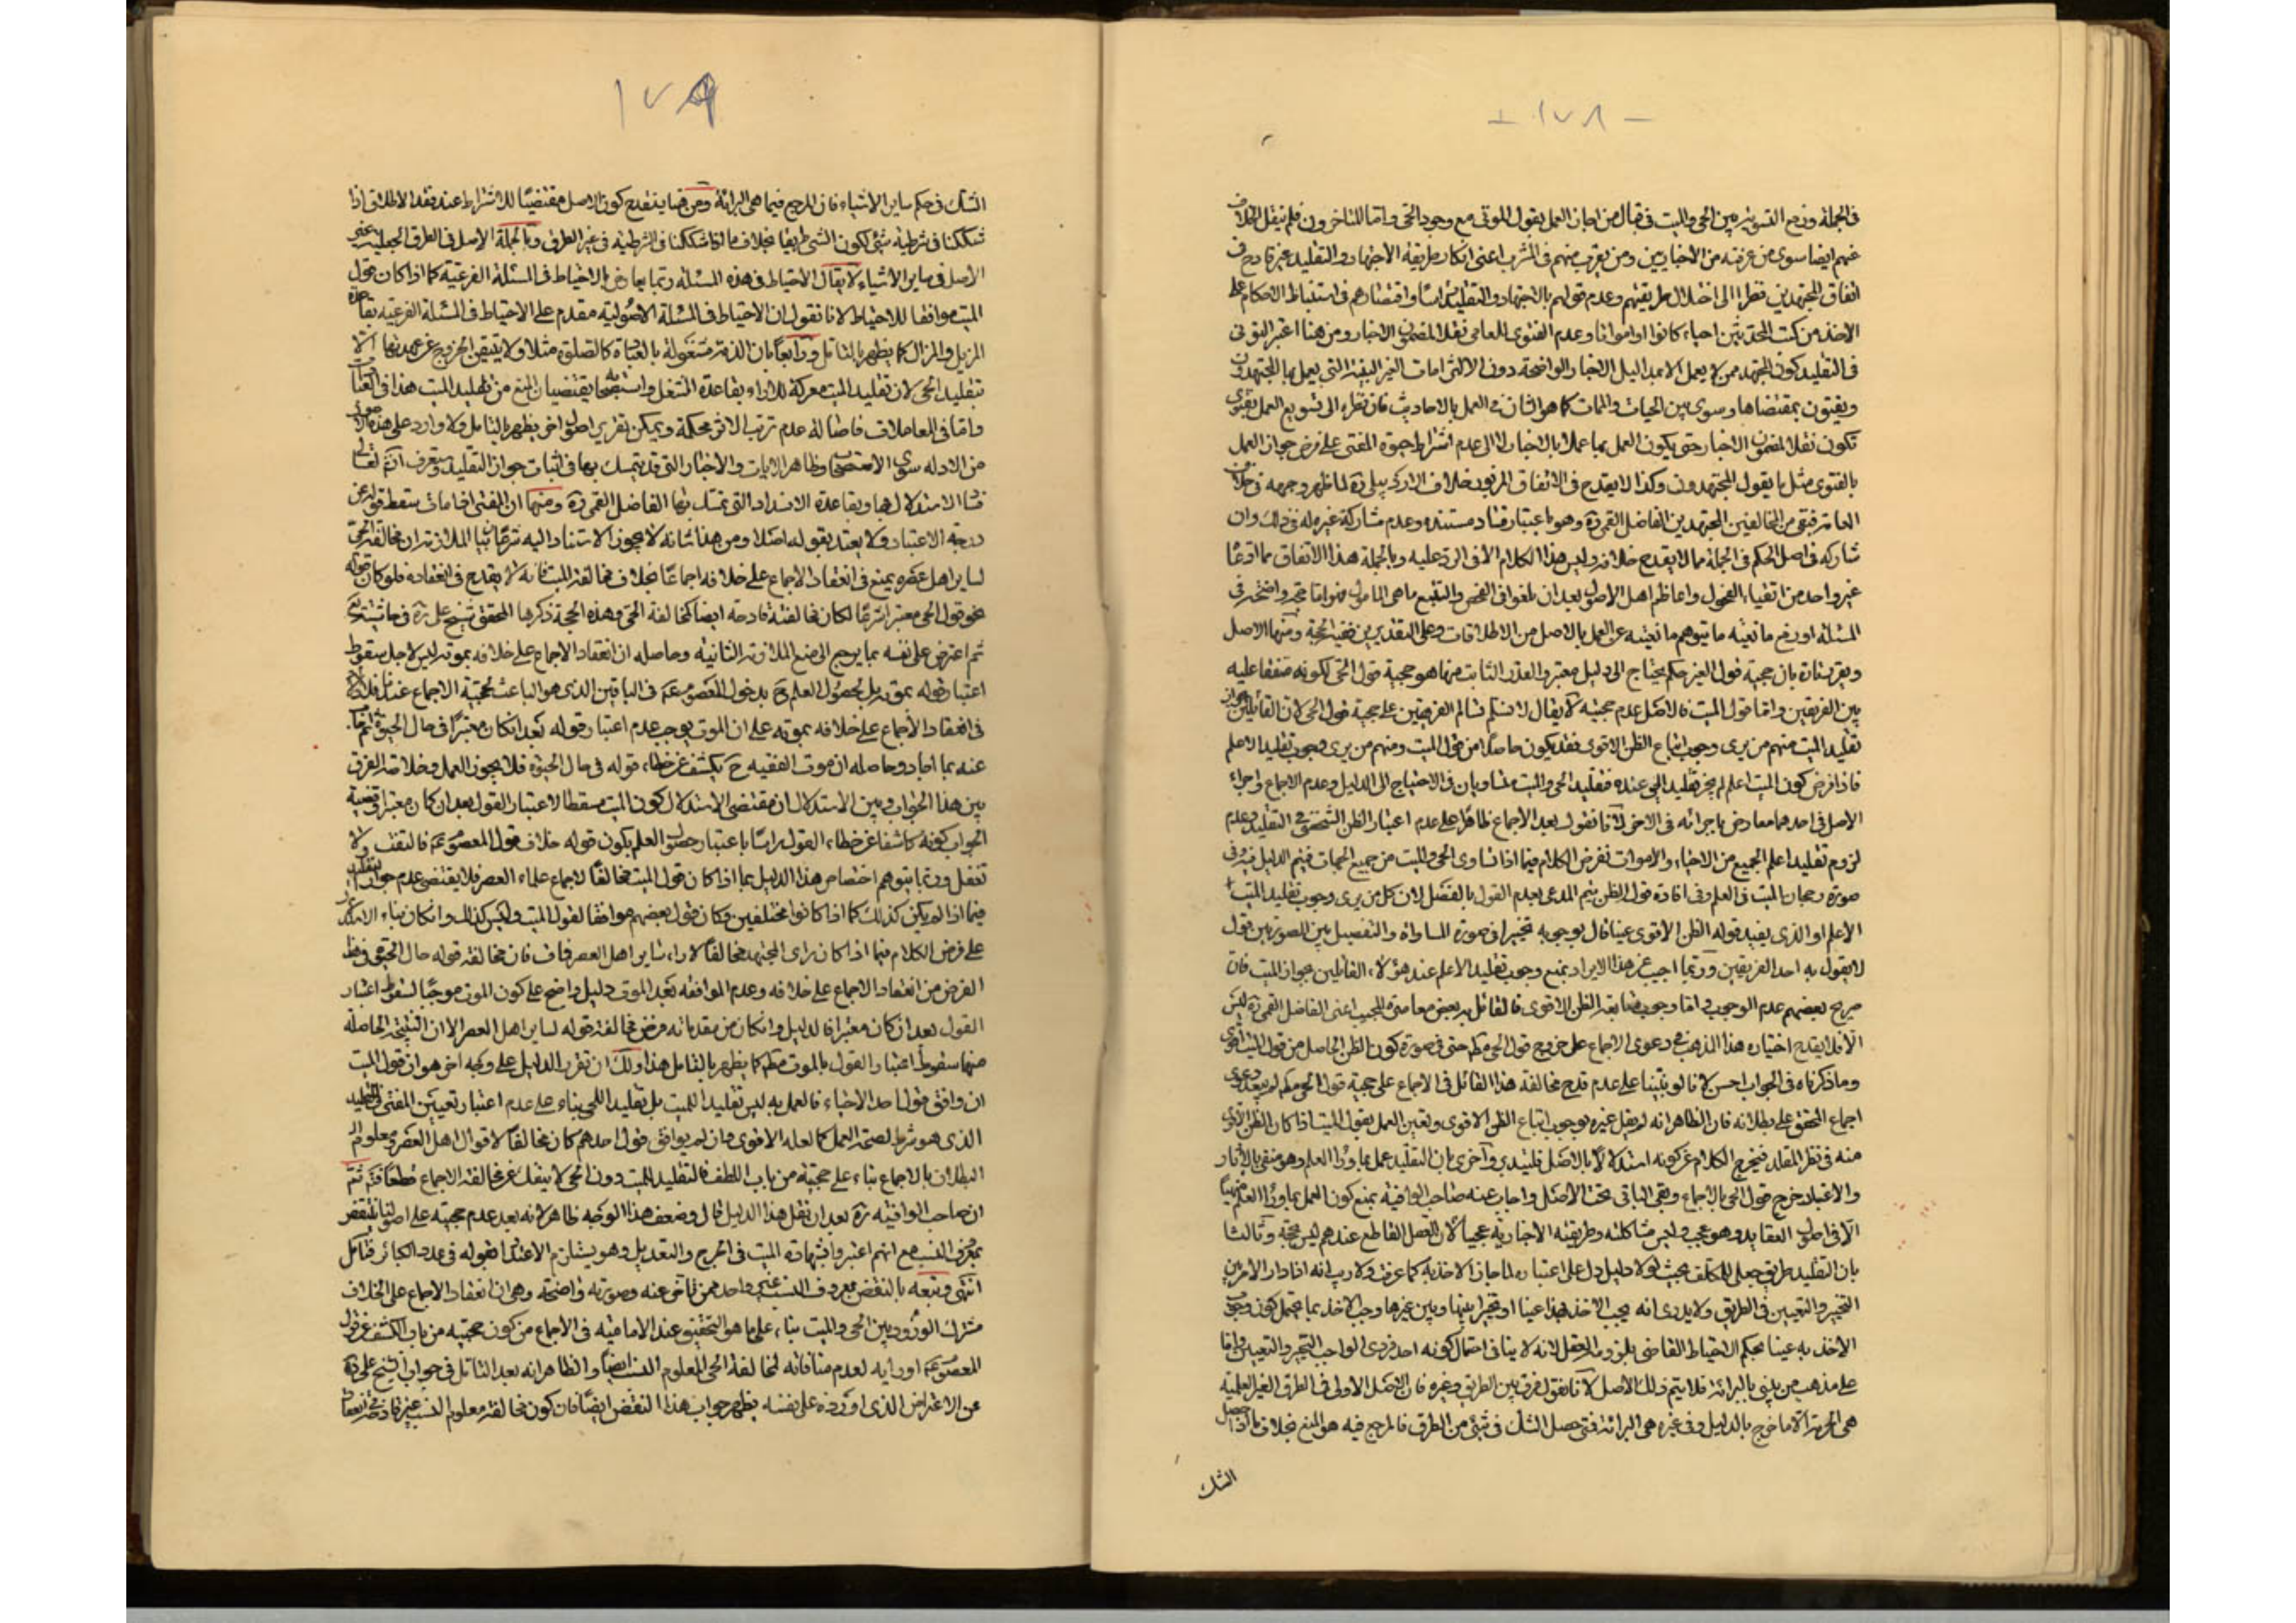 - ١٧٨ -
في الجملة ونزع التسوية بين الحي والميت فقال من اجاز العمل بقول الموتى مع وجود الحي واما المتاخرون فلم ينقل الخلاف
عنهم ايضا سوى من عرفته من الاخباريين ومن يقرب منهم في المشرب اعنى انكار طريقة الاجتهاد والتقليد غير قادح في
اتفاق المجتهدين نظرا الى اختلال طريقتهم وعدم قولهم بالاجتهاد والتقليد راسا واقتصارهم في استنباط الاحكام على
الاخذ من كتب المحدثين احياء كانوا او امواتا وعدم الفتوى للعامى نقلا لمضمون الاخبار ومن هنا اعتبر التونى
في التقليد كون المجتهد ممن لا يعمل الا بمداليل الاخبار الواضحة دون الالتزامات الغير البينة التي يعمل بها المجتهدون
ويفتون بمقتضاها وسوى بين الحيات والممات كما هو الشان في العمل بالاحاديث فان نظره الى تسويغ العمل بفتوى
تكون نقلا لمضمون الاخبار حتى يكون العمل بها عملا بالاخبار لا الى عدم اشتراط حيوة المفتى على فرض جواز العمل
بالفتوى مثل ما يقول المجتهدون وكذا لا يقدح في الاتفاق المزبور خلاف الاردبيلى ره لما ظهر وجهه في خلاف
العامة فبقى من المخالفين المجتهدين الفاضل القمى ره وهو باعتبار فساد مستنده وعدم مشاركة غيره له في ذلك وان
شاركه في اصل الحكم في الجملة مما لا يقدح خلافه وليس هذا الكلام الا في الرد عليه وبالجملة هذا الاتفاق مما ادعا
غير واحد من اتقياء الفحول واعاظم اهل الاصول بعد ان بلغوا في الفحص والتتبع ما هى المامول فهو اما حجة واضحة في
المسئلة او رفع مانعية ما يتوهم مانعيته عن العمل بالاصل من الاطلاقات وعلى التقديرين ففيه الحجة ومنها الاصل
وتقريره تارة بان حجية قول الغير حكم يحتاج الى دليل معتبر والقدر الثابت منها هو حجية قول الحى لكونه متفقا عليه
بين الفريقين واما قول الميت فالاصل عدم حجيته لا يقال لا نسلم تسالم الفريقين على حجية قول الحى لان القائلين بجواز
تقليد الميت منهم من يرى وجوب اتباع الظن الاقوى فقد يكون حاصلا من قول الميت ومنهم من يرى وجوب تقليد الاعلم
فاذا فرض كون الميت اعلم لم يجز تقليد الحى عنده فتقليد الحى والميت متساويان في الاحتياج الى الدليل وعدم الاجماع واجراء
الاصل في احدهما معارض باجرائه في الاخر لانا نقول بعد الاجماع ظاهرا على عدم اعتبار الظن الشخصى في التقليد وعدم
لزوم تقليد اعلم الجميع من الاحياء والاموات نفرض الكلام فيما اذا تساوى الحى والميت من جميع الجهات فيتم الدليل فيه وفى
صورة رجحان الميت في العلم وفى افادة قوله الظن يتم المدعى بعدم القول بالفصل لان كل من يرى وجوب تقليد الميت
الاعلم او الذى يفيد قوله الظن الاقوى عينا قال بوجوبه تخييرا في صورة المساواة والتفصيل بين الصورتين قول
لا يقول به احد الفريقين وربما اجيب عن هذا الايراد بمنع وجوب تقليد الاعلم عند هؤلاء القائلين بجواز الميت فان
صريح بعضهم عدم الوجوب واما وجوب متابعة الظن الاقوى فالقائل به بعض معاصرى المجيب اعنى الفاضل القمى ره ليس
الا فلا يقدح اختياره هذا المذهب في دعوى الاجماع على خروج قول الحى مط حتى في صورة كون الظن الحاصل من قول الميت اقوى
وما ذكرناه في الجواب احسن لانا لو بنينا على عدم قدح مخالفة هذا القائل في الاجماع على حجية قول الحى مط لم يبعد دعوى
اجماع المحقق على بطلانه فان الظاهر انه لم يقل غيره بوجوب اتباع الظن الاقوى وتعين العمل بقول الميت اذا كان الظن
منه في نظر المقلد فيخرج الكلام عن كونه استدلالا بالاصل فليتدبر واخرى بان التقليد عمل بما وراء العلم وهو منفى بالاثار
والاعتبار خرج قول الحى بالاجماع وبقى الباقى تحت الاصل واجاب عنه صاحب الوافية بمنع كون العمل بما وراء العلم منهيا
الا في اصول العقايد وهو عجيب وليس مشاكلته وطريقته الاخبارية عجيبا لان العقل القاطع عندهم ليس بحجة وثالثا
بان التقليد طريق جعلى للمكلف بحيث لولا دليل دل على اعتباره لما جاز الاخذ به كما عرفت ولا ريب انه اذا دار الامر بين
التخيير والتعيين في الطريق ولا يدرى انه يجب الاخذ بهذا عينا او تخييرا بينها وبين غيرها وجب الاخذ بما يحتمل كون وجوب
الاخذ به عينا بحكم الاحتياط القاضى بلزومه العقل لانه لا ينافى احتمال كونه احد فردى الواجب التخيير والتعيين واما
على مذهب من يبنى بالبرائة فلا يتم ذلك الاصل لانا نقول فرق بين الطريق وغيره فان الاصل الاولى في الطرق الغير العلمية
هى الحرمة الا ما خرج بالدليل وفى غيره هى البرائة فمتى حصل الشك في شئ من الطرق فالمرجع فيه هو المنع بخلاف ما اذا حصل
الشك
١٧٩
الشك في حكم ساير الاشياء فان المرجع فيها هى البرائة ومن هنا ينقدح كون الاصل مقتضيا للاشتراط عند فقد الاطلاق اذا
شككنا في شرطية شئ لكون الشئ طريقا بخلاف ما اذا شككنا في الشرطية في غير الطرق وبالجملة الاصل في الطرق الجعلية غير
الاصل في ساير الاشياء لا يقال الاحتياط في هذه المسئلة ربما يعارض بالاحتياط في المسئلة الفرعية كما اذا كان قول
الميت موافقا للاحتياط لانا نقول ان الاحتياط في المسئلة الاصولية مقدم على الاحتياط في المسئلة الفرعية بقاعدة
المزيل والمزال كما يظهر بالتامل ورابعا بان الذمة مشغولة بالعبادة كالصلوة مثلا ولا يتيقن الخروج عن عهدتها الا
بتقليد الحى لان تقليد الميت معركة للاراء بقاعدة الشغل واستصحابه يقتضيان المنع من تقليد الميت هذا في العبادات
واما في المعاملات فاصالة عدم ترتب الاثر محكمة ويمكن تقرير اصول اخر يظهر بالتامل ولا وارد على هذه الاصول
من الادلة سوى الاستصحاب وظاهر الايات والاخبار التي قد يتمسك بها في اثبات جواز التقليد وستعرف انش تعالى
فساد الاستدلال بها وبقاعدة الانسداد التي تمسك بها الفاضل القمى ره ومنها ان المفتى اذا مات سقط قوله عن
درجة الاعتبار ولا يعتد بقوله اصلا ومن هذا شانه لا يجوز الاستناد اليه شرعا بيان الملازمة ان مخالفة الحى
لساير اهل عصره يمنع في انعقاد الاجماع على خلافه اجماعا بخلاف مخالفة الميت فانه لا يقدح في انعقاده فلو كان قوله
نحو قول الحى معتبرا شرعا لكان مخالفته قادحة ايضا كمخالفة الحى وهذه الحجة ذكرها المحقق الشيخ على ره في حاشية يع
ثم اعترض على نفسه بما يرجع الى منع الملازمة الثانية وحاصله ان انعقاد الاجماع على خلافه بموته ليس لاجل سقوط
اعتبار قوله بموته بل لحصول العلم ح بدخول المعصوم ع في الباقين الذى هو الباعث لحجية الاجماع عندنا فلا دلالة
في انعقاد الاجماع على خلافه بموته على ان الموت يوجب عدم اعتبار قوله بعد ان كان معتبرا في حال الحيوة ثم اجاب
عنه بما اجاد وحاصله ان موت الفقيه ح يكشف عن خطاء قوله في حال الحيوة فلا يجوز العمل وخلاصة الفرق
بين هذا الجواب وبين الاستدلال ان مقتضى الاستدلال كون الميت مسقطا لاعتبار القول بعد ان كان معتبرا وقضية
الجواب كونه كاشفا عن خطاء القول راسا باعتبار حصول العلم بكون قوله خلاف قول المعصوم ع فالتفت ولا
تغفل وربما يتوهم اختصاص هذا الدليل بما اذا كان قول الميت مخالفا لاجماع علماء العصر فلا يقتضى عدم جواز تقليده
فيما اذا لم يكن كذلك كما اذا كانوا مختلفين وكان قول بعضهم موافقا لقول الميت وليس كذلك وان كان بناء الاستدلال
على فرض الكلام فيما اذا كان راى المجتهد مخالفا لاراء ساير اهل العصر فمات فان مخالفة قوله حال الحيوة
الفرض من انعقاد الاجماع على خلافه وعدم الموافقة بعد الموت دليل واضح على كون الموت موجبا لسقوط اعتبار
القول بعد ان كان معتبرا فالدليل وان كان من مقدماته فرض مخالفة قوله لساير اهل العصر الا ان النتيجة الحاصلة
منها سقوط اعتبار القول بالموت مط كما يظهر بالتامل هذا ولك ان تقرر الدليل على وجه اخر هو ان قول الميت
ان وافق قول احد الاحياء فالعمل به ليس تقليدا للميت بل تقليدا للحى بناء على عدم اعتبار تعيين المفتى في التقليد
الذى هو شرط لصحة العمل كما لعله الاقوى وان لم يوافق قول احدهم كان مخالفا لاقوال اهل العصر ومعلوم
البطلان بالاجماع بناء على حجيته من باب اللطف فالتقليد للميت دون الحى لا ينفك عن مخالفة الاجماع قطعا ثم
ان صاحب الوافية ره بعد ان نقل هذا الدليل قال وضعف هذا الوجه ظاهر لانه بعد عدم حجيته على اصولنا ينتقض
بمعروف النسب مع انهم اعتبروا شهادة الميت في الجرح والتعديل وهو يستلزم الاعتداد بقوله في عدد الكبائر فتامل
انتهى وتبعه بالنقض بمعروف النسب غير واحد ممن تاخر عنه وصورته واضحة وهى ان انعقاد الاجماع على الخلاف
مشترك الورود بين الحى والميت بناء على ما هو التحقيق عند الامامية في الاجماع من كون حجيته من باب الكشف عن قول
المعصوم ع او رايه لعدم منافاته لمخالفة الحى المعلوم النسب ايضا والظاهر انه بعد التامل في جواب الشيخ على ره
عن الاعتراض الذى اورده على نفسه يظهر جواب هذا النقض ايضا فان كون مخالفة معلوم النسب غير قادحة في انعقاد